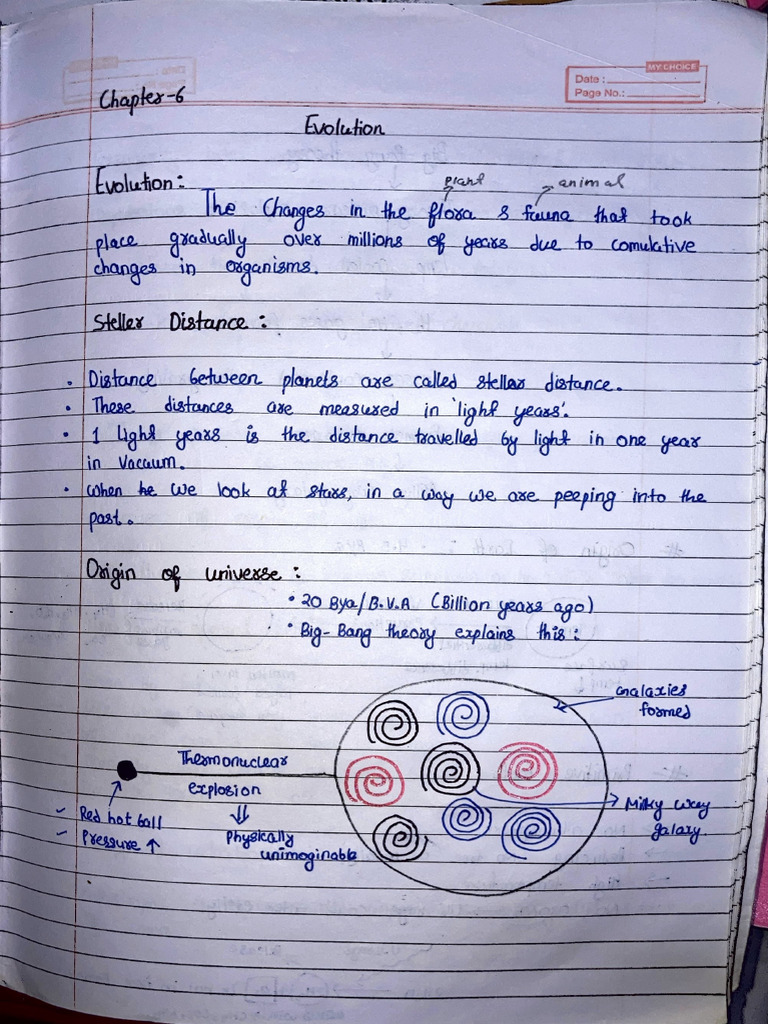 MY CHOICE
Date :
Page No.:
Chapter-6
Evolution
Evolution:
plant
animal
The Changes in the flora & fauna that took
place gradually over millions of years due to comulative
changes in organisms.
Steller Distance :
• Distance between planets are called stellar distance.
• These distances are measured in 'light years'.
• 1 Light years is the distance travelled by light in one year
in vaccum.
• when he we look at stars, in a way we are peeping into the
past.
Origin of universe :
• 20 Bya/B.Y.A (Billion years ago)
• Big-Bang theory explains this :
Galaxies
formed
Thermonuclear
explosion
- Red hot ball
- Pressure ↑
⇓
Physically
unimoginable
Milky way
galaxy